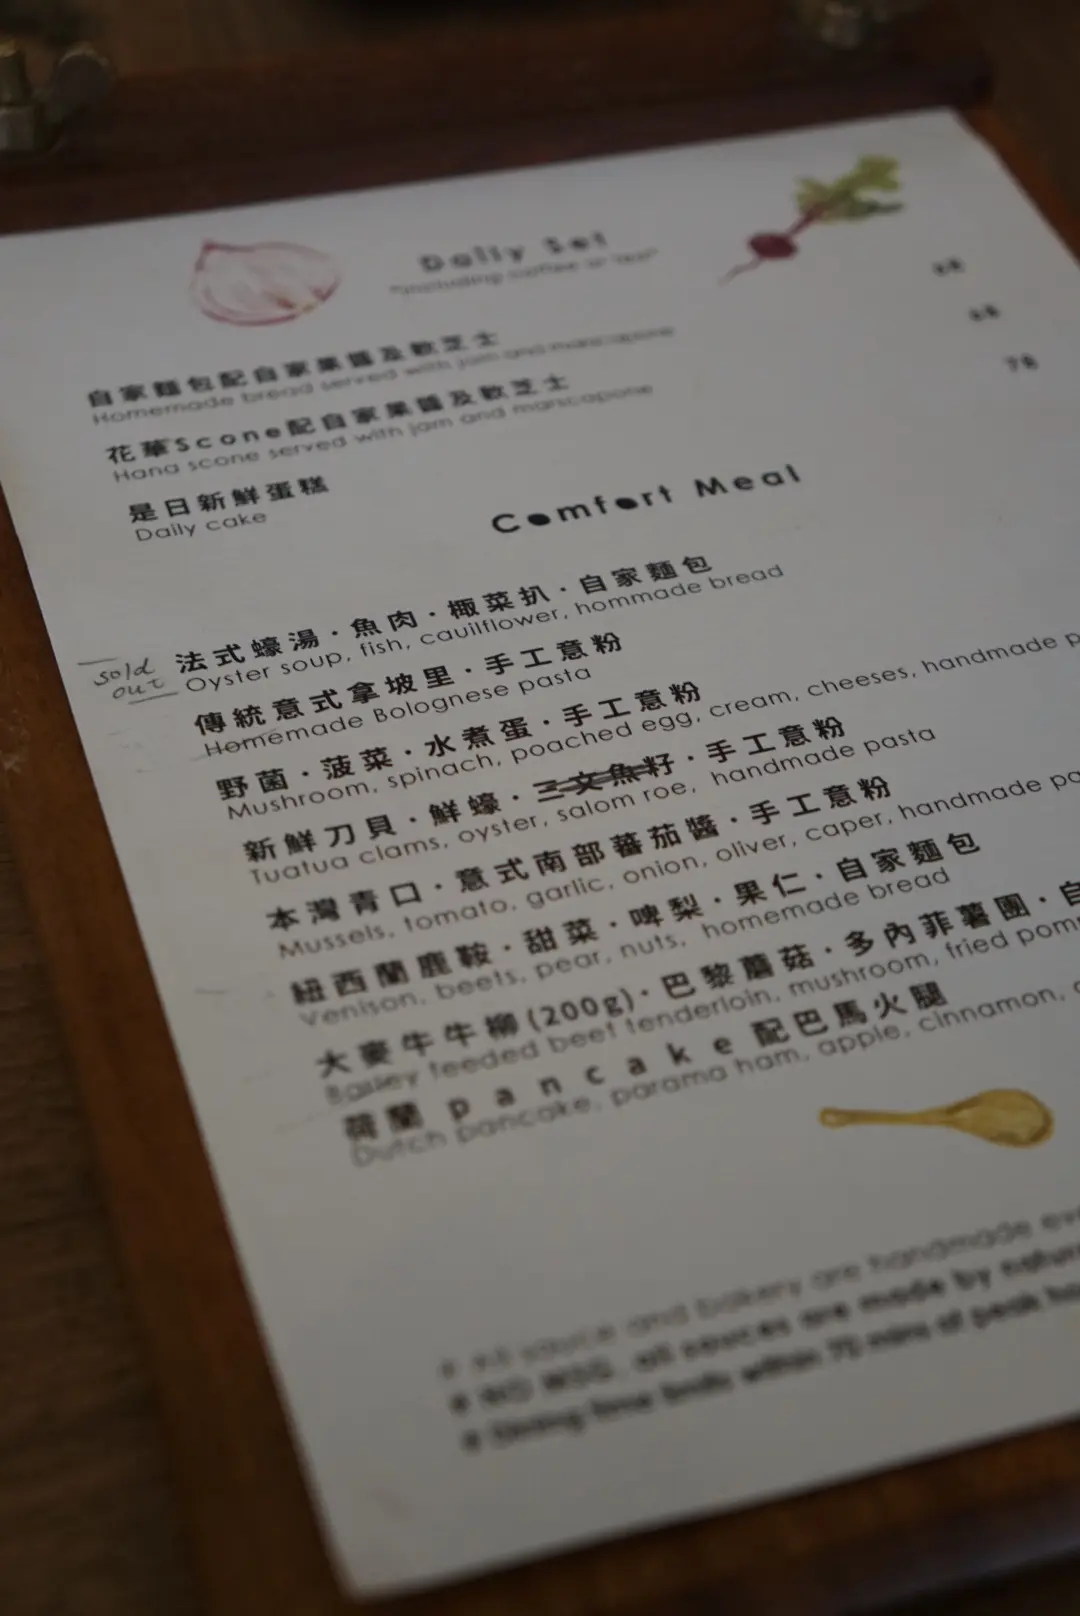 Daily Set
"including coffee or tea"
自家麵包配自家果醬及軟芝士
Homemade bread served with jam and mascapone
68
花華Scone配自家果醬及軟芝士
Hana scone served with jam and marscapone
68
是日新鮮蛋糕
Daily cake
78
Comfort Meal
sold out
法式蠔湯·魚肉·椰菜扒·自家麵包
Oyster soup, fish, cauilflower, hommade bread
傳統意式拿坡里·手工意粉
Homemade Bolognese pasta
野菌·菠菜·水煮蛋·手工意粉
Mushroom, spinach, poached egg, cream, cheeses, handmade p
新鮮刀貝·鮮蠔·三文魚籽·手工意粉
Tuatua clams, oyster, salom roe, handmade pasta
本灣青口·意式南部蕃茄醬·手工意粉
Mussels, tomato, garlic, onion, oliver, caper, handmade pa
紐西蘭鹿鞍·甜菜·啤梨·果仁·自家麵包
Venison, beets, pear, nuts, homemade bread
大麥牛牛柳(200g)·巴黎蘑菇·多內菲薯團·自
Barley feeded beef tenderloin, mushroom, fried pom
荷蘭pancake配巴馬火腿
Dutch pancake, parama ham, apple, cinnamon,
# All sauce and bakery are handmade eve
# NO MSG, all sauces are made by natur
# Dining time limits within 70 mins of peak ho